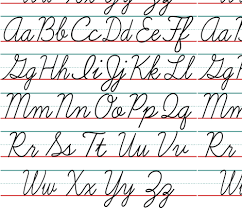 Ww Xx Yy Zz Ww
Aa Bb Cc Dd Ee Ff Aa B
Gg Hh Ii Jj Kk Ll Gg H
Mm Nn Oo Pp Qq Mm N
Rr Ss Tt Uu Vv Rr
Ww Xx Yy Zz Ww